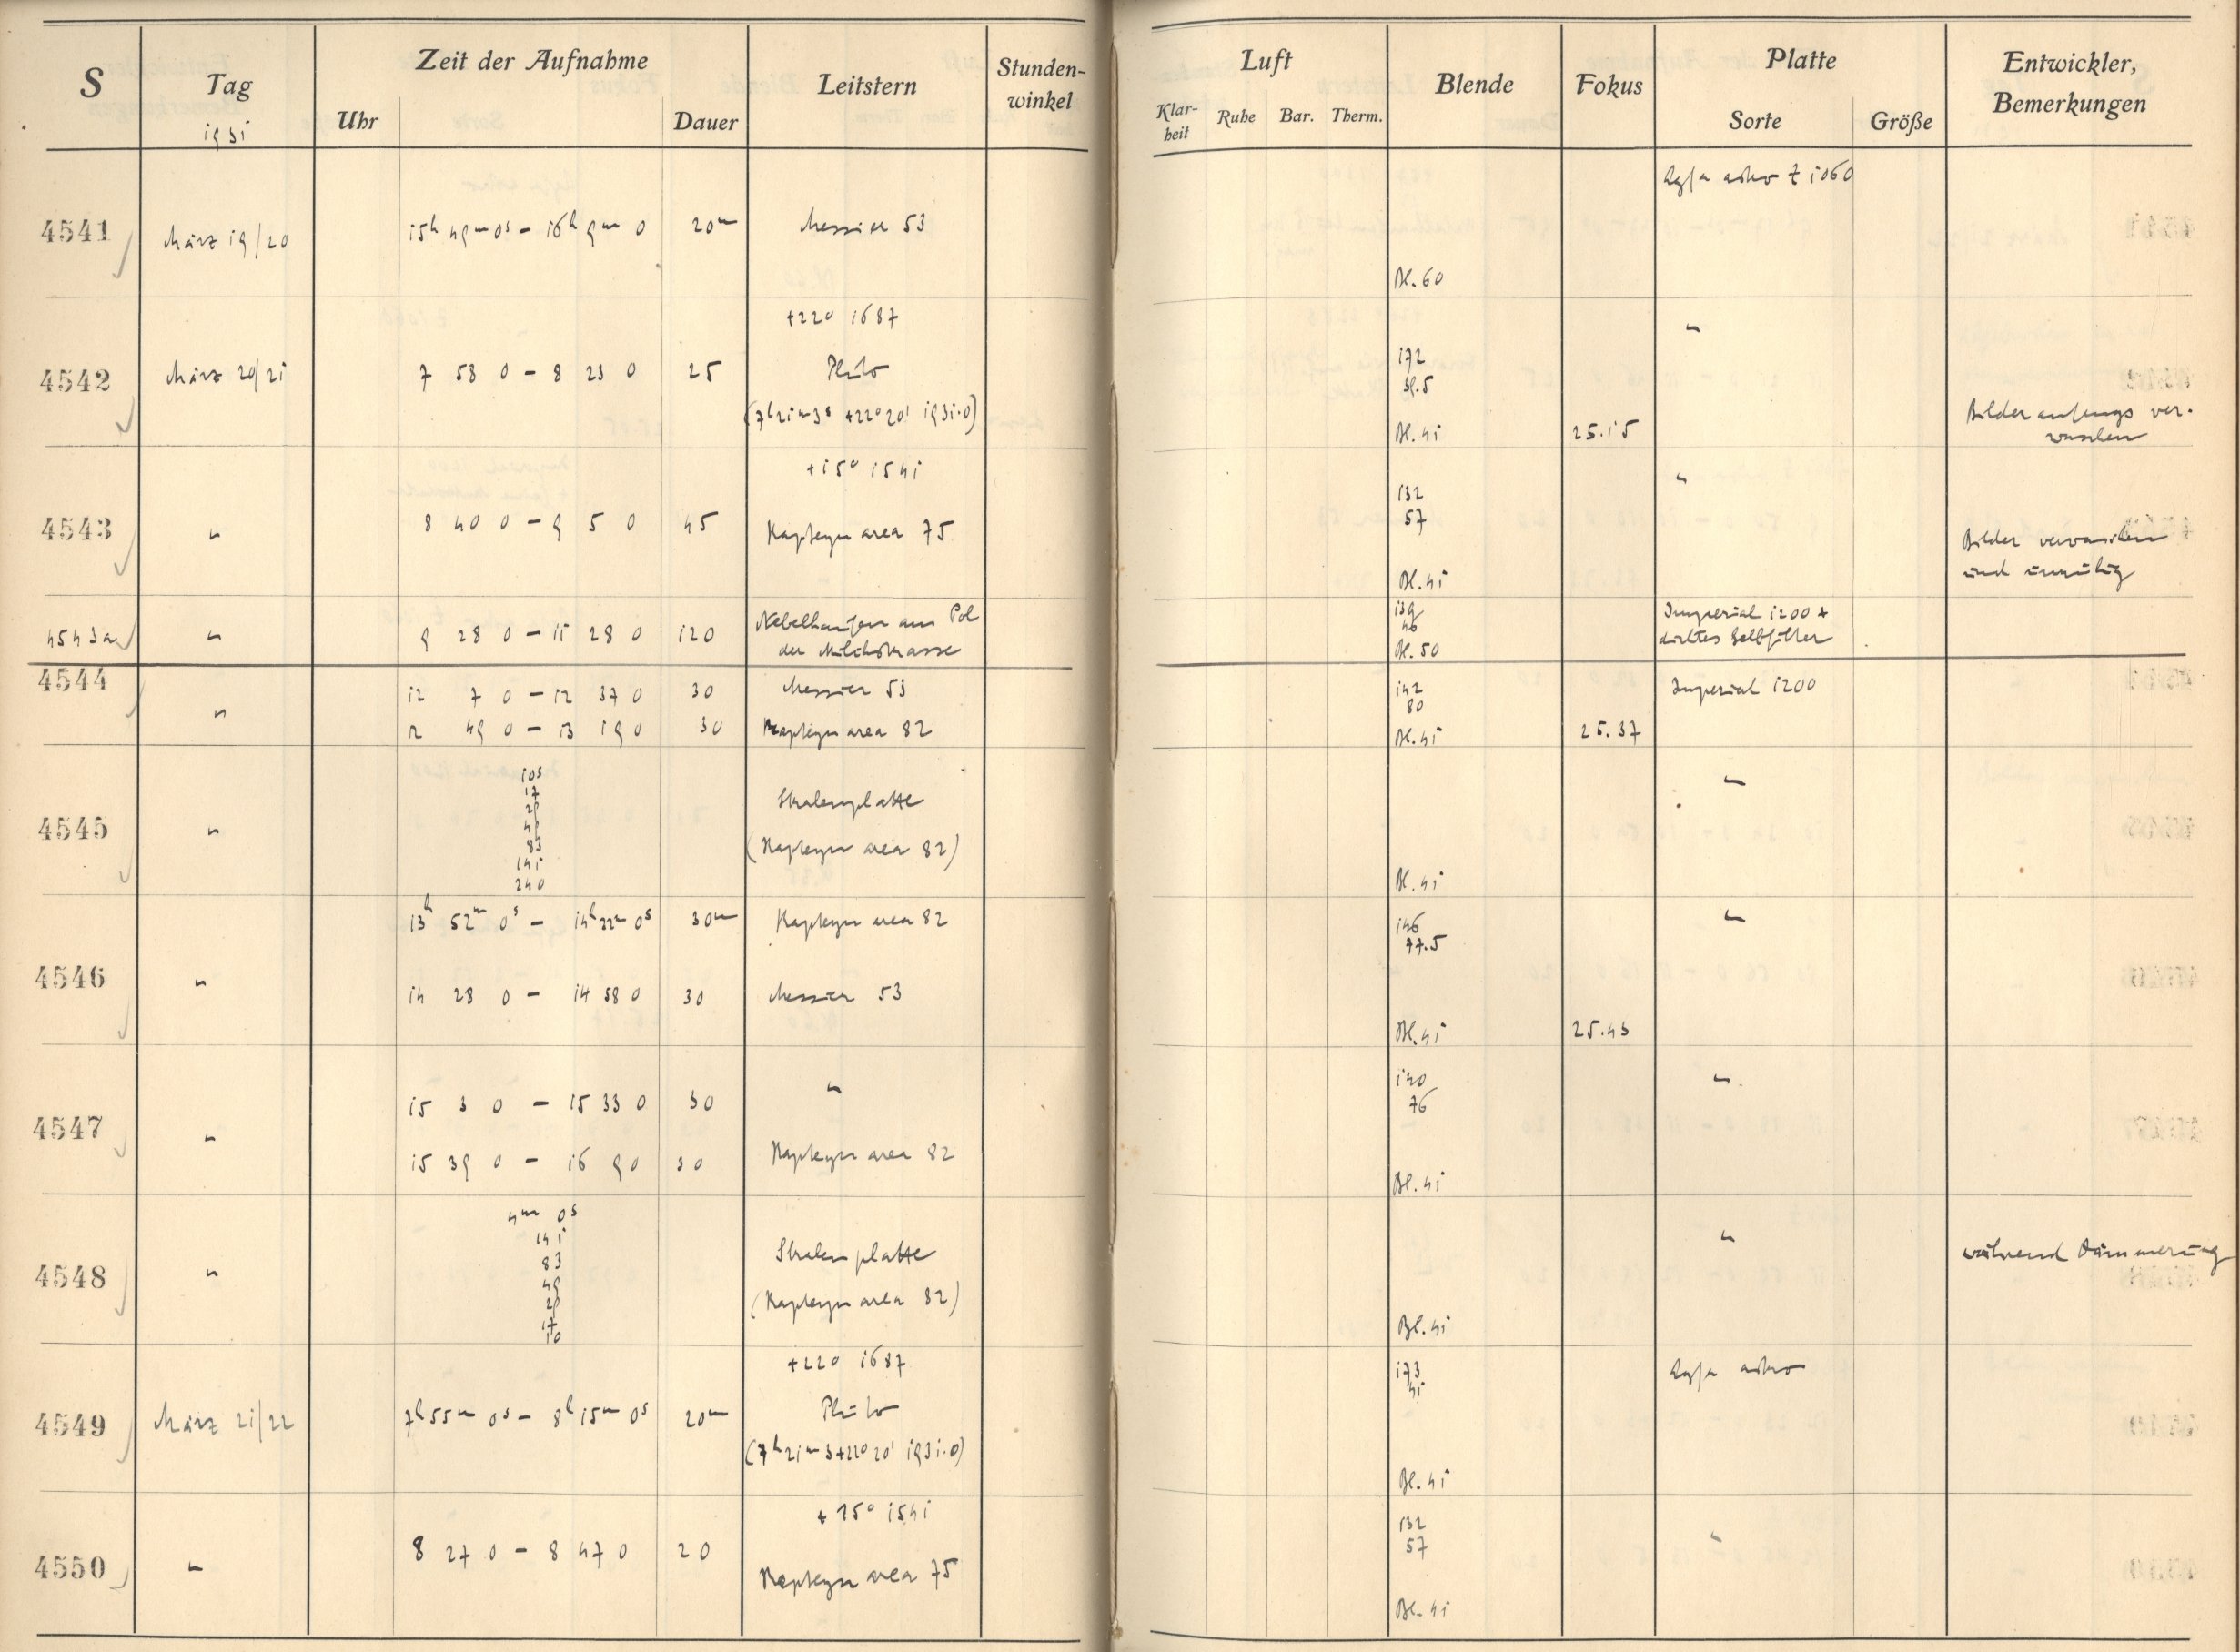 S Tag 1931 Zeit der Aufnahme Uhr Dauer Leitstern Stunden-winkel Luft Klar-heit Ruhe Bar. Therm. Blende Fokus Platte Sorte Größe Entwickler, Bemerkungen
Agfa astro Z 1060
4541 März 19/20 15h 49m 0s – 16h 9m 0 20m Messier 53
Bl. 60
+22° 1687
4542 März 20/21 7 58 0 – 8 23 0 25 Pluto 172
(7h 21m 3s +22° 20' 1931.0)
Bl. 41 25.15 Bilder anfangs ver-
waschen
+15° 1541
4543 " 8 40 0 – 9 5 0 45 Kapteyn area 75 132
57
Bilder verwaschen
und unruhig
Bl. 41
4543a " 9 28 0 – 11 28 0 120 Nebelhaufen am Pol
der Milchstrasse
139
46
Bl. 50
Imperial 1200 +
dichtes Gelbfilter
4544 " 12 7 0 – 12 37 0 30 Messier 53 142
80
Imperial 1200
12 49 0 – 13 19 0 30 Kapteyn area 82 Bl. 41 25.37
4545 " 10s
17
29
49
83
141
240
Skalenplatte
(Kapteyn area 82)
Bl. 41
"
4546 " 13h 52m 0s – 14h 22m 0s 30m Kapteyn area 82 146
77.5
"
14 28 0 – 14 58 0 30 Messier 53
Bl. 41 25.43
4547 " 15 3 0 – 15 33 0 30 " 140
76
"
15 39 0 – 16 9 0 30 Kapteyn area 82
Bl. 41
4548 " 4m 0s
141
83
49
29
17
10
Skalenplatte
(Kapteyn area 82)
Bl. 41
" während Dämmerung
+22° 1687
4549 März 21/22 7h 55m 0s – 8h 15m 0s 20m Pluto 173
41
Agfa astro
(7h 21m 3 +22° 20' 1931.0)
Bl. 41
+15° 1541
4550 " 8 27 0 – 8 47 0 20 Kapteyn area 75 132
57
"
Bl. 41